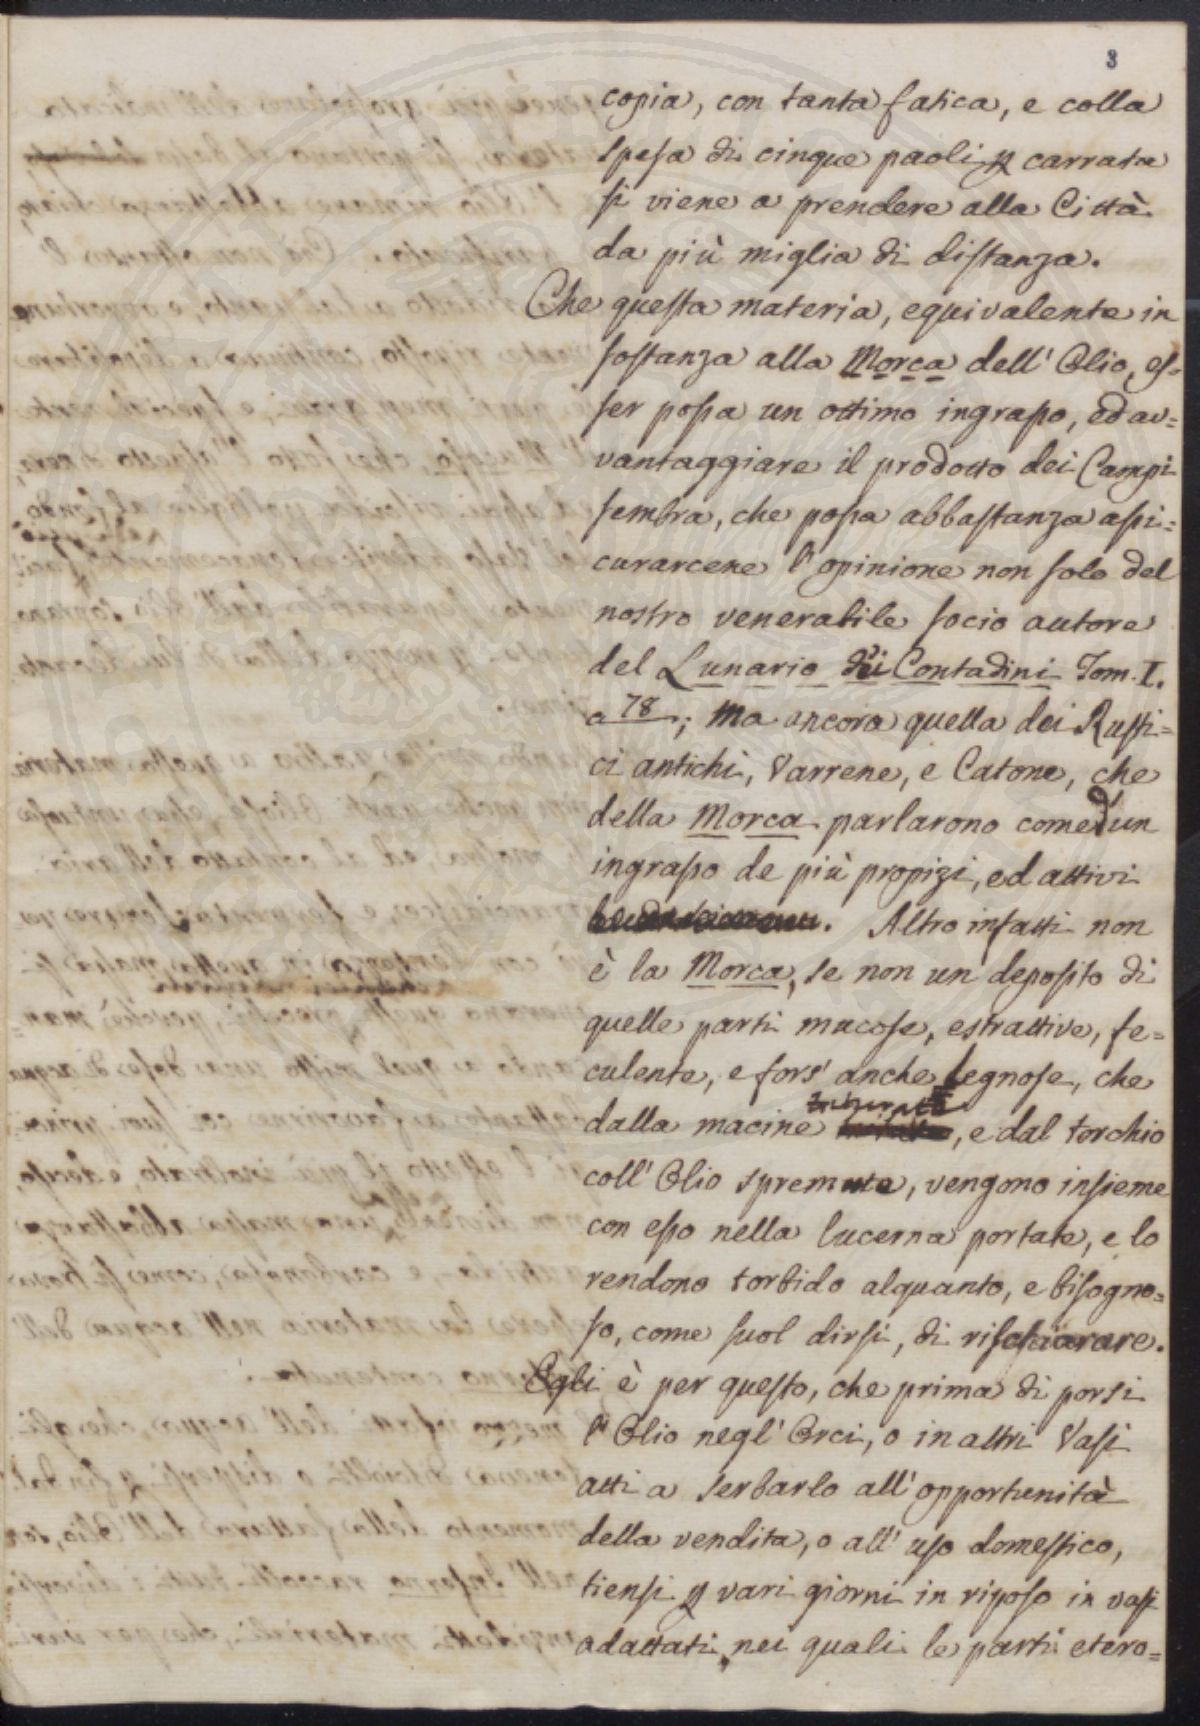 3
copia, con tanta fatica, e colla
spesa di cinque paoli p carrata
si viene a prendere alla Città
da più miglia di distanza.
Che questa materia, equivalente in
sostanza alla Morca dell' Olio, es-
ser possa un ottimo ingrasso, ed av=
vantaggiare il prodotto dei Campi
sembra, che possa abbastanza assi=
curarcene l'opinione non solo del
nostro venerabile socio autore
del Lunario dei Contadini Tom. I.
a 78.; Ma ancora quella dei Rusti=
ci antichi, Varrene, e Catone, che
della Morca parlarono come d'un
ingrasso de più propizi, ed attivi
. Altro infatti non
è la Morca, se non un deposito di
quelle parti mucose, estrattive, fe=
culente, e fors' anche legnose, che
dalla macine, e dal torchio
coll' Olio spremute, vengono insieme
con esso nella lucerna portate, e lo
rendono torbido alquanto, e bisogno=
so, come suol dirsi, di rischiarare.
Egli è per questo, che prima di porsi
l' Olio negl' Orci, o in altri Vasi
atti a serbarlo all' opportunità
della vendita, o all' uso domestico,
tiensi p vari giorni in riposo in vasi
adattati, nei quali le parti etero=